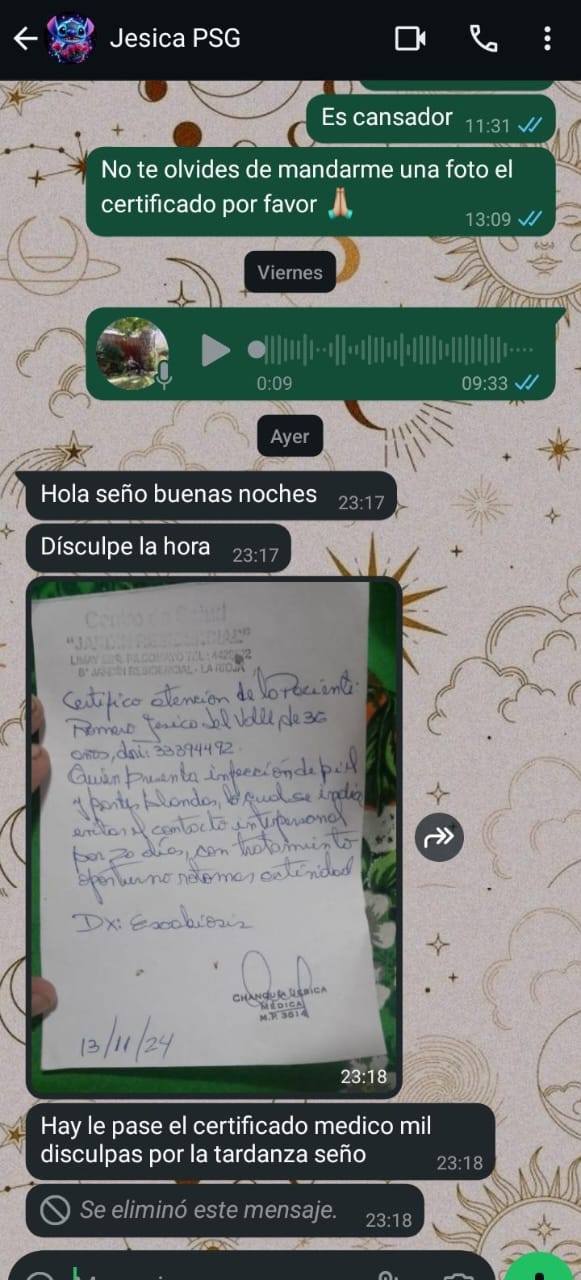 Jesica PSG
Es cansador 11:31
No te olvides de mandarme una foto el
certificado por favor 🙏🏼
13:09
Viernes
0:09 09:33
Ayer
Hola seño buenas noches 23:17
Dísculpe la hora 23:17
Centro de Salud
"JARDIN RESIDENCIAL"
B° JARDIN RESIDENCIAL - LA RIOJA
Certifico atención de la Paciente:
Romero Jesica del Valle de 36
años, dni: 33394492.
Quien presenta infección de piel
y partes blandas, lo cual se indica
evitar el contacto interpersonal
por 20 días, con tratamiento
oportuno retomar actividad
Dx: Escabiosis
MÉDICA
M.P. 3014
13/11/24
23:18
Hay le pase el certificado medico mil
disculpas por la tardanza seño 23:18
Se eliminó este mensaje. 23:18